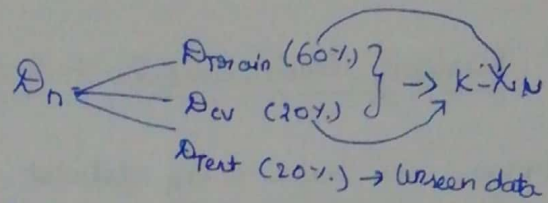 Dn
DTrain (60%) } → K-NN
Dcv (20%)
DTest (20%) → Unseen data